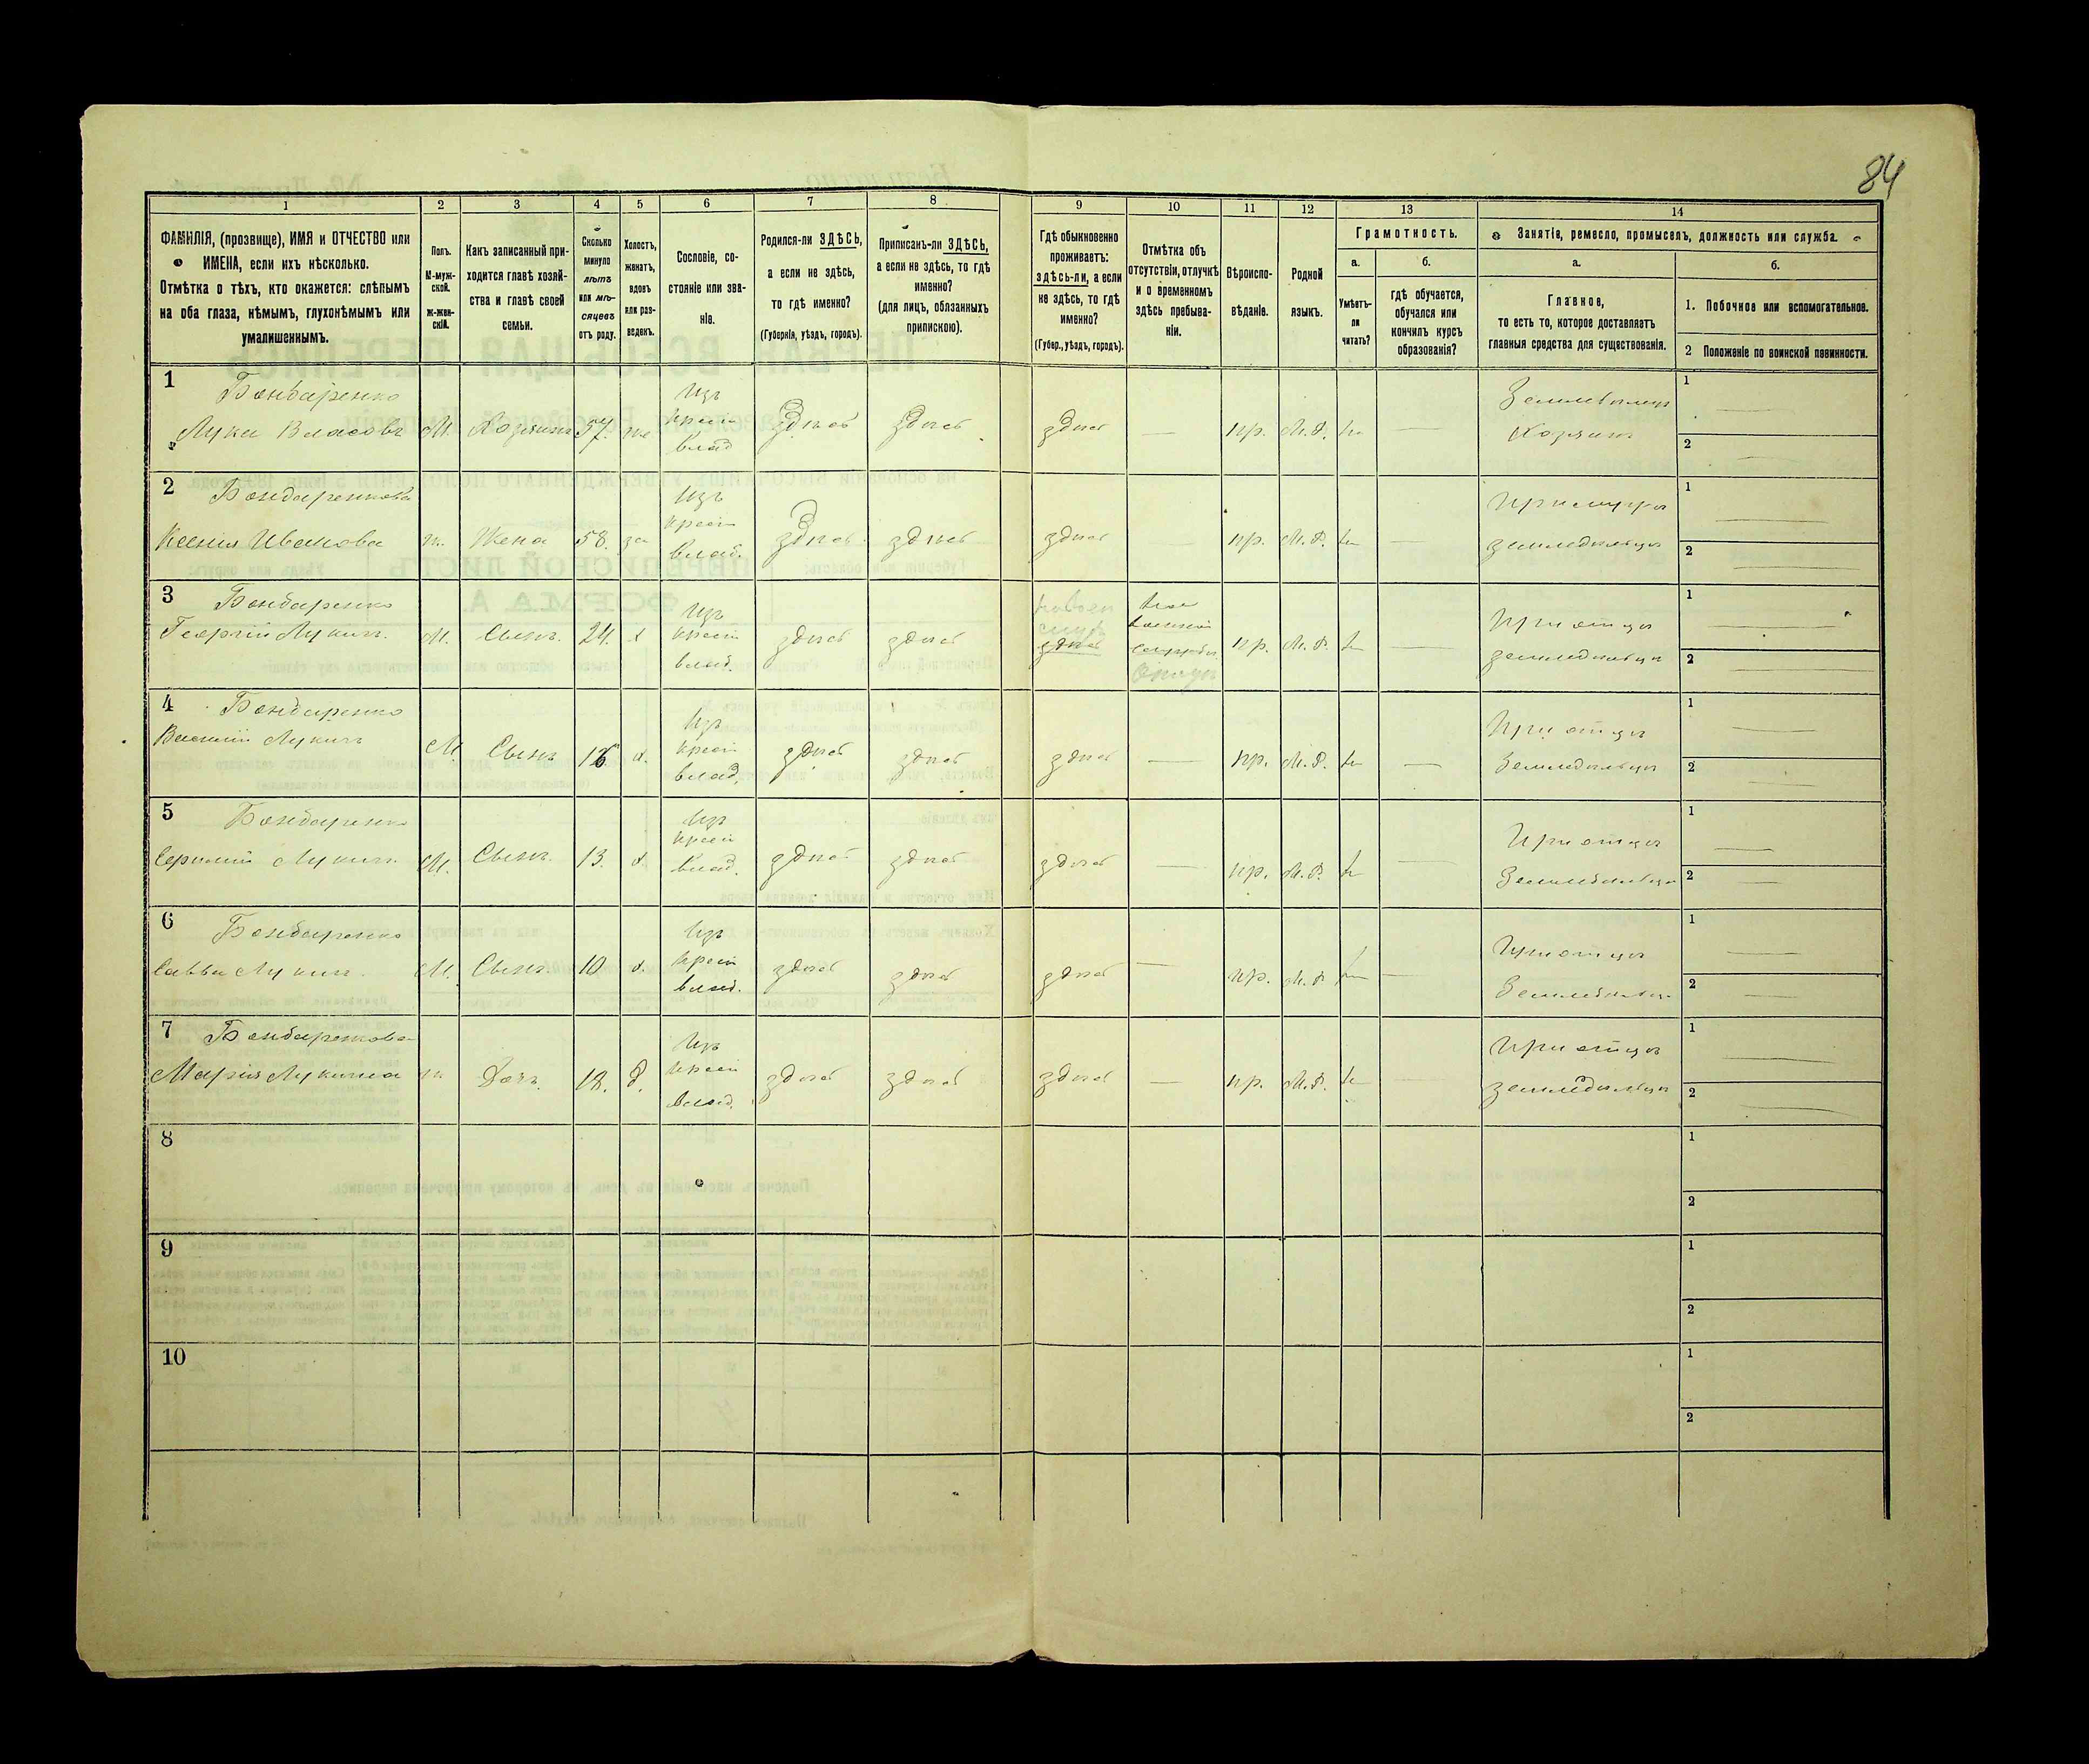 84
1 2 3 4 5 6 7 8 9 10 11 12 13 14
ФАМИЛІЯ, (прозвище), ИМЯ и ОТЧЕСТВО или
ИМЕНА, если ихъ нѣсколько.
Отмѣтка о тѣхъ, кто окажется: слѣпымъ
на оба глаза, нѣмымъ, глухонѣмымъ или
умалишеннымъ.
Полъ.
М-муж-
ской.
ж-жен-
скій.
Какъ записанный при-
ходится главѣ хозяй-
ства и главѣ своей
семьи.
Сколько
минуло
лѣтъ
или мѣ-
сяцевъ
отъ роду.
Холостъ,
женатъ,
вдовъ
или раз-
веденъ.
Сословіе, со-
стояніе или зва-
ніе.
Родился-ли ЗДѢСЬ,
а если не здѣсь,
то гдѣ именно?
(Губернія, уѣздъ, городъ).
Приписанъ-ли ЗДѢСЬ,
а если не здѣсь, то гдѣ
именно?
(для лицъ, обязанныхъ
припискою).
Гдѣ обыкновенно
проживаетъ:
здѣсь-ли, а если
не здѣсь, то гдѣ
именно?
(Губер., уѣздъ, городъ).
Отмѣтка объ
отсутствіи, отлучкѣ
и о временномъ
здѣсь пребыва-
ніи.
Вѣроиспо-
вѣданіе.
Родной
языкъ.
Грамотность.
а.
Умѣетъ-
ли
читать?
б.
гдѣ обучается,
обучался или
кончилъ курсъ
образованія?
Занятіе, ремесло, промыселъ, должность или служба.
а.
Главное,
то есть то, которое доставляетъ
главныя средства для существованія.
б.
1. Побочное или вспомогательное.
2 Положеніе по воинской повинности.
1 Бондаренко
Лука Власовъ М. Хозяинъ 57. же
Изъ
крест
влад
здѣсь здѣсь здѣсь — пр. М.Р. —
Земледѣлецъ
Хозяинъ
1
2
2 Бондаренкова
Ксенія Иванова ж. Жена 58. за
Изъ
крест
влад.
здѣсь здѣсь здѣсь — пр. М.Р. —
При мужѣ
земледѣльцѣ
1
2
3 Бондаренко
Георгій Лукинъ. М. Сынъ. 24. х
Изъ
крест
влад.
здѣсь здѣсь здѣсь пр. М.Р. —
При отцѣ
земледѣльцѣ
1
2
4 Бондаренко
Василій Лукинъ М Сынъ 16 х.
Изъ
крест
влад.
здѣсь здѣсь здѣсь — пр. М.Р. —
При отцѣ
Земледѣльцѣ
1
2
5 Бондаренко
Лукинъ М. Сынъ. 13. х.
Изъ
крест
влад.
здѣсь здѣсь здѣсь — пр. М.Р. —
При отцѣ
Земледѣльцѣ
1
2
6 Бондаренко
Савва Лукинъ. М. Сынъ. 10 х.
Изъ
крест
влад.
здѣсь здѣсь здѣсь — пр. М.Р. —
При отцѣ
Земледѣльцѣ
1
2
7 Бондаренкова
Марія Лукина ж. Дочь. 18. д.
Изъ
крест
влад.
здѣсь здѣсь здѣсь — пр. М.Р. —
При отцѣ
земледѣльцѣ
1
2
8
1
2
9
1
2
10
1
2